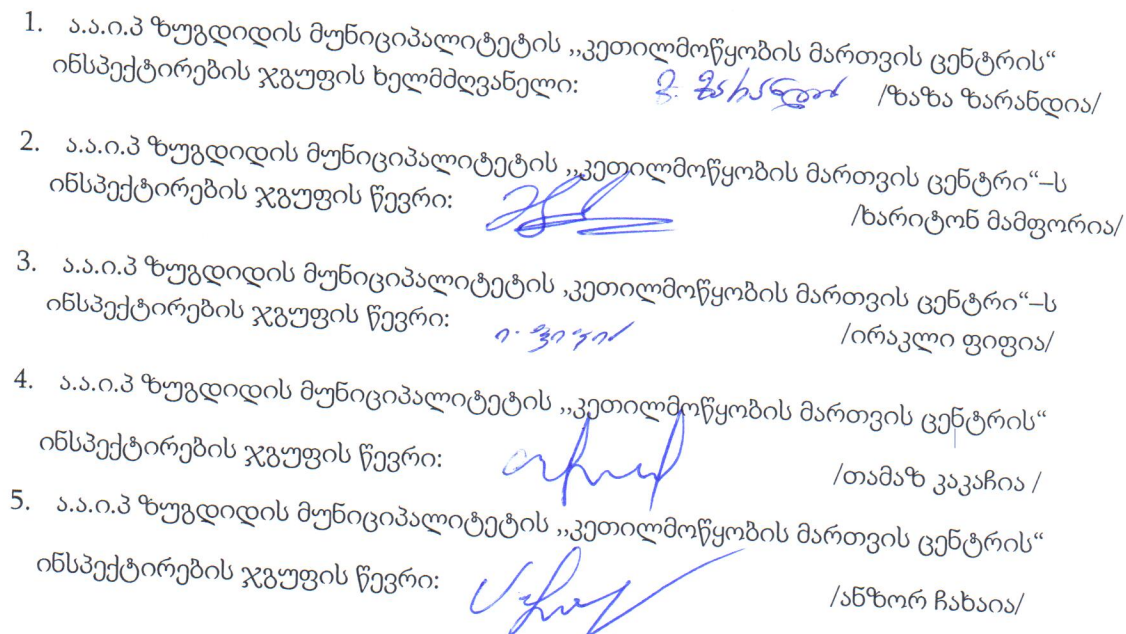 1. ა.ა.ი.პ ზუგდიდის მუნიციპალიტეტის ,,კეთილმოწყობის მართვის ცენტრის“
ინსპექტირების ჯგუფის ხელმძღვანელი: ზ. ზარანდია /ზაზა ზარანდია/
2. ა.ა.ი.პ ზუგდიდის მუნიციპალიტეტის ,,კეთილმოწყობის მართვის ცენტრი“–ს
ინსპექტირების ჯგუფის წევრი: /ხარიტონ მამფორია/
3. ა.ა.ი.პ ზუგდიდის მუნიციპალიტეტის ,კეთილმოწყობის მართვის ცენტრი“–ს
ინსპექტირების ჯგუფის წევრი: ი. ფიფია /ირაკლი ფიფია/
4. ა.ა.ი.პ ზუგდიდის მუნიციპალიტეტის ,,კეთილმოწყობის მართვის ცენტრის“
ინსპექტირების ჯგუფის წევრი: /თამაზ კაკაჩია /
5. ა.ა.ი.პ ზუგდიდის მუნიციპალიტეტის ,,კეთილმოწყობის მართვის ცენტრის“
ინსპექტირების ჯგუფის წევრი: /ანზორ ჩახაია/